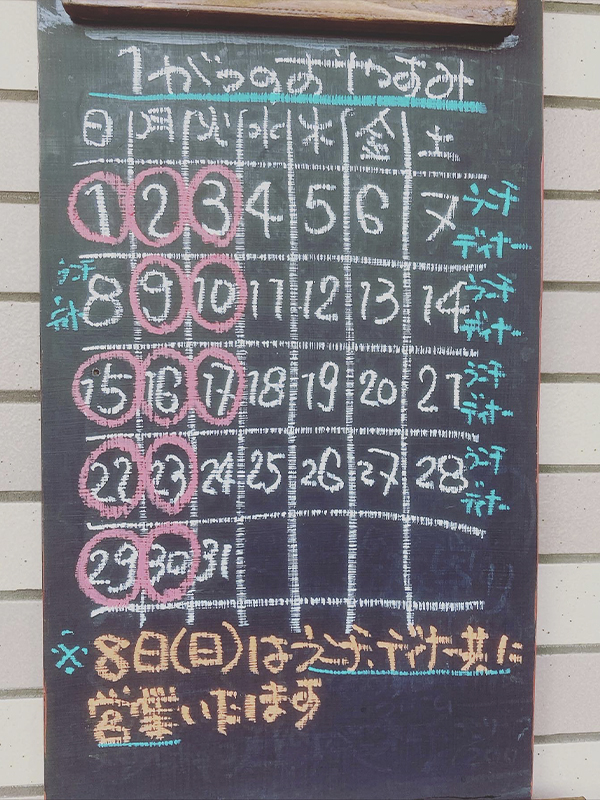 1がつのおやすみ
日 月 火 水 木 金 土
1 2 3 4 5 6 7 ランチ ディナー
ランチ ディナー 8 9 10 11 12 13 14 ランチ ディナー
15 16 17 18 19 20 21 ランチ ディナー
22 23 24 25 26 27 28 ランチ ディナー
29 30 31
※ 8日(日)はランチ、ディナー共に
営業いたします